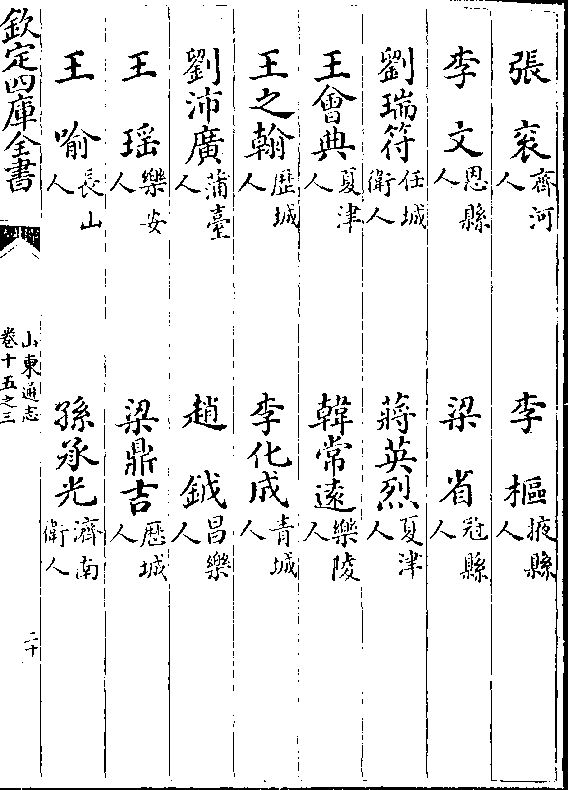 張衮齊河人　李樞掖縣人
李文恩縣人　梁省冠縣人
劉瑞符任城衛人　蔣英烈夏津人
王會典夏津人　韓常遠樂陵人
王之翰歴城人　李化成青城人
劉沛廣蒲臺人　趙鉞昌樂人
王瑶樂安人　梁鼎吉歴城人
王喻長山人　孫承光濟南衛人
欽定四庫全書
山東通志
卷十五之三
二十